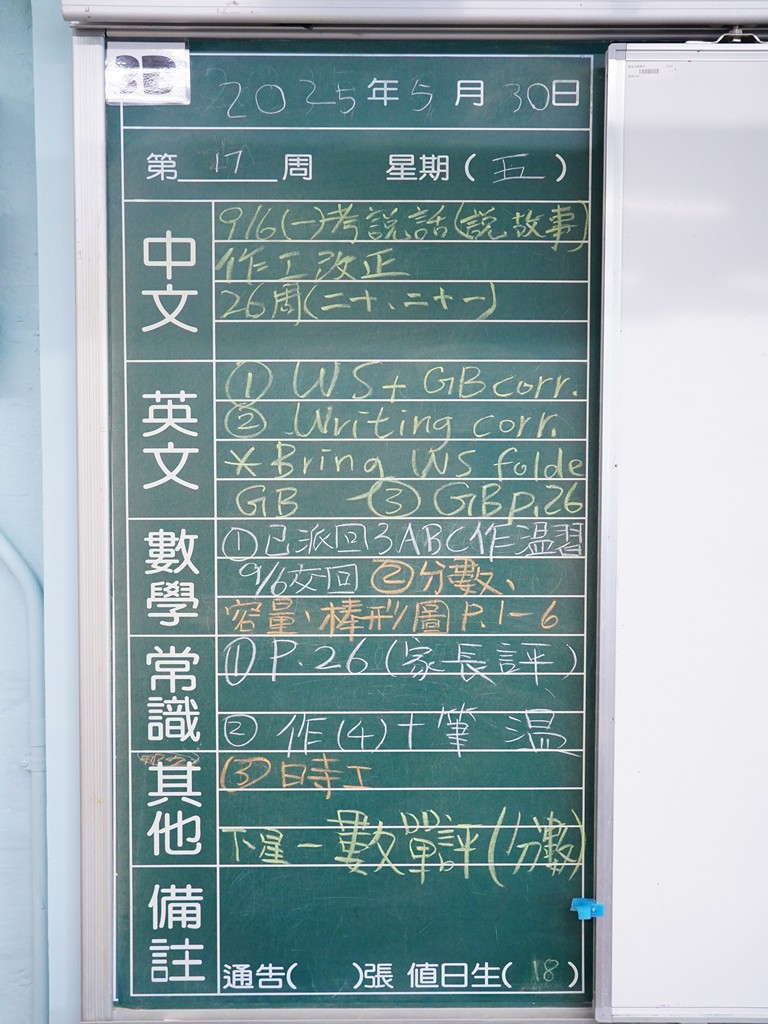 2025年5月30日
第17周 星期(五)
中文
9/6(一)考説話(説故事)
作工改正
26周(二十、二十一)
英文
① WS + GB corr.
② Writing corr.
* Bring WS folde
GB ③ GB p.26
數學
①已派回3ABC作溫習
9/6交回 ②分數、
容量、棒形圖 P.1-6
常識
① P.26 (家長評)
② 作(4)+筆 溫
其他
③時工
下星一 數單評(分數)
備註
通告( )張 值日生(18)